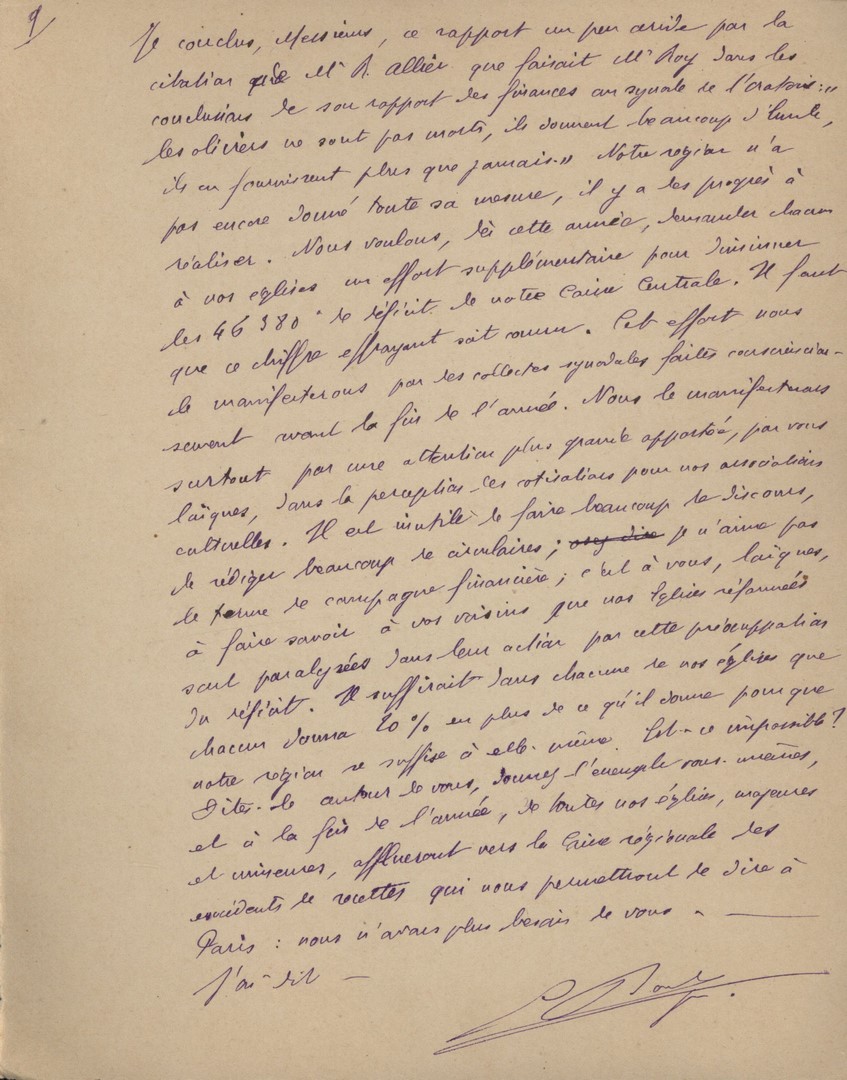 9
Je conclus, Messieurs, ce rapport un peu aride par la
citation de Mr R. Allier que faisait Mr Roy dans les
conclusions de son rapport des finances au synode de l'oratoire : "
les oliviers ne sont pas morts, ils donnent beaucoup d'huile,
ils en fourniront plus que jamais. " Notre région n'a
pas encore donné toute sa mesure, il y a des progrès à
réaliser. Nous voulons, dès cette année, demander chacun
à nos églises un effort supplémentaire pour diminuer
les 46 380 de déficit de notre Caisse Centrale. Il faut
que ce chiffre effrayant soit connu. Cet effort nous
le manifesterons par des collectes synodales faites consciencieu-
sement avant la fin de l'année. Nous le manifesterons
surtout par une attention plus grande apportée, par vous
laïques, dans la perception des cotisations pour nos associations
cultuelles. Il est inutile de faire beaucoup de discours,
de rédiger beaucoup de circulaires ; je n'aime pas
le terme de campagne financière ; c'est à vous, laïques,
à faire savoir à vos voisins que nos Eglises réformées
sont paralysées dans leur action par cette préoccupation
du déficit. Il suffirait dans chacune de nos églises que
chacun donna 20 % en plus de ce qu'il donne pour que
notre région se suffise à elle-même. Est-ce impossible ?
Dites-le autour de vous, donnez l'exemple vous-mêmes,
et à la fin de l'année, de toutes nos églises, majeures
et mineures, afflueront vers la Caisse régionale des
excédents de recettes qui nous permettront de dire à
Paris : nous n'avons plus besoin de vous
J'ai dit —